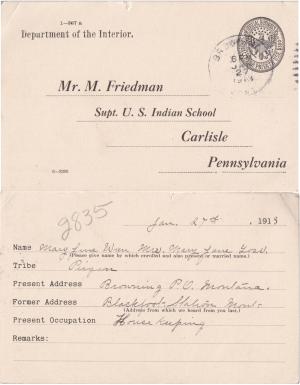 1—967 a
Department of the Interior.
Mr. M. Friedman
Supt. U. S. Indian School
Carlisle
Pennsylvania
2835
Jan. 27th, 1915
Name Mary Jane Mrs. Mary Jane
(Please give name by which enrolled and also present or married name.)
Tribe Piegan
Present Address Browning P.O. Montana.
Former Address Blackfoot Station Mont.
(Address from which we heard from you last.)
Present Occupation Housekeeping
Remarks: